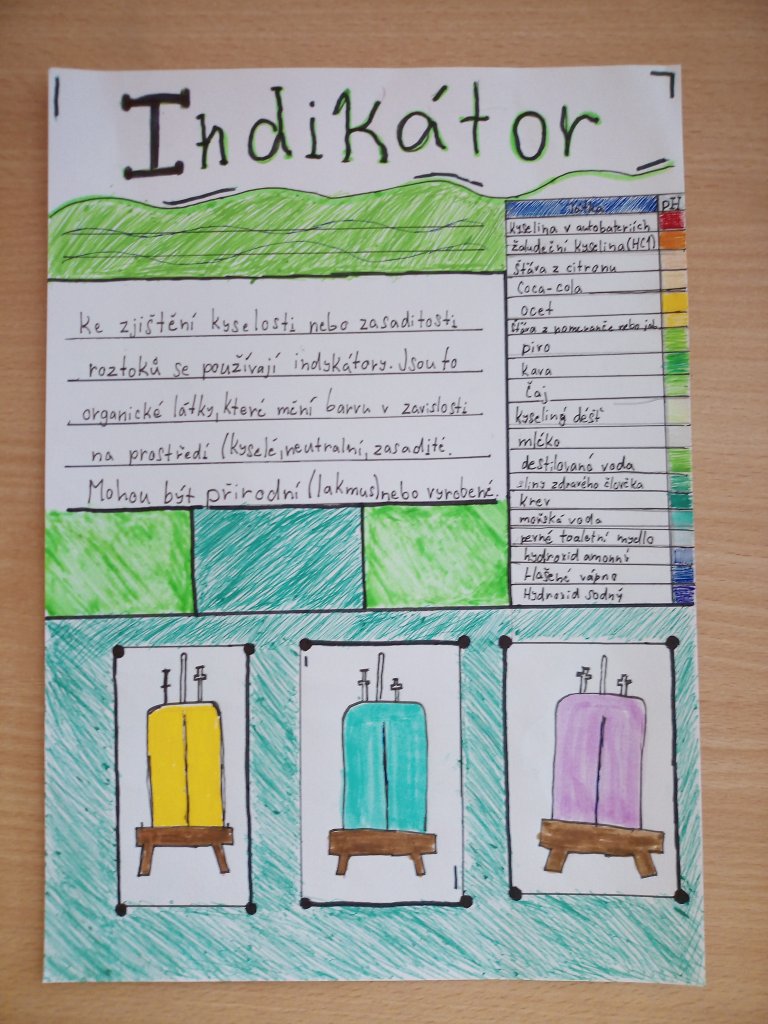 Indikátor
Ke zjištění kyselosti nebo zasaditosti
roztoků se používají indykátory. Jsou to
organické látky, které mění barvu v zavislosti
na prostředí (kyselé, neutralní, zasadité.
Mohou být přírodní (lakmus) nebo vyrobené.
Látka pH
Kyselina v autobateriích
žaludeční Kyselina (HCl)
šťáva z citronu
Coca-cola
ocet
šťáva z pomeranče nebo jab
pivo
kava
Čaj
kyseliný déšť
mléko
destilovaná voda
sliny zdravého člověka
Krev
mořská voda
pevné toaletní mydlo
hydroxid amonní
Hašené vápno
Hydroxid Sodný